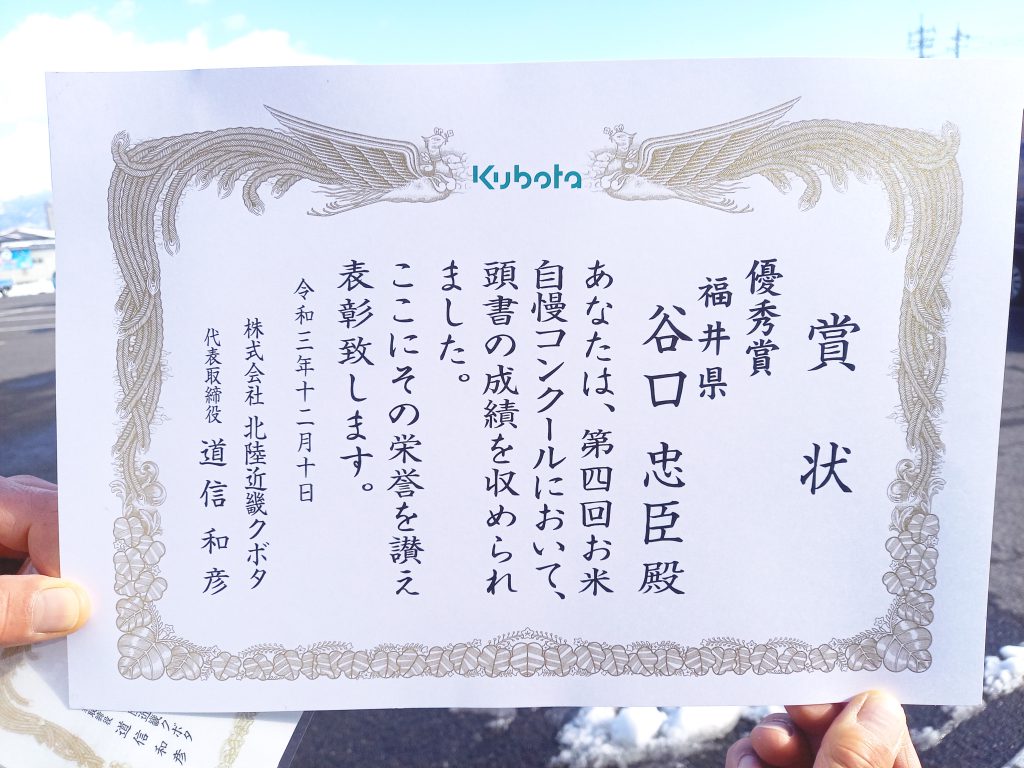 Kubota
賞状
優秀賞
福井県
谷口忠臣殿
あなたは、第四回お米
自慢コンクールにおいて、
頭書の成績を収められ
ました。
ここにその栄誉を讃え
表彰致します。
令和三年十二月十日
株式会社 北陸近畿クボタ
代表取締役 道信和彦
近畿クボタ
道信和彦